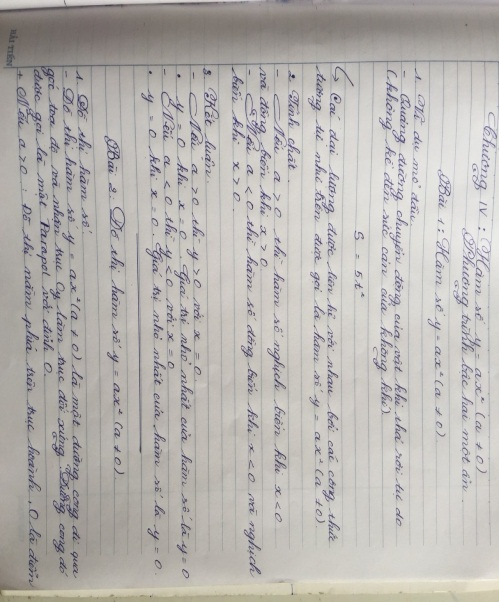 Chương IV : Hàm số y = ax² (a ≠ 0)
Phương trình bậc hai một ẩn.
Bài 1 : Hàm số y = ax² (a ≠ 0).
1. Ví dụ mở đầu
- Quãng đường chuyển động của vật khi thả rơi tự do
(không kể đến sức cản của không khí)
S = 5t²
↳ Các đại lượng được liên hệ với nhau bởi các công thức
tương tự như trên được gọi là hàm số y = ax² (a ≠ 0)
2. Tính chất.
- Nếu a > 0 thì hàm số nghịch biến khi x < 0
và đồng biến khi x > 0.
- Nếu a < 0 thì hàm số đồng biến khi x < 0 và nghịch
biến khi x > 0
3. Kết luận.
- Nếu a > 0 thì y > 0 với x = 0.
• y = 0 khi x = 0. Giá trị nhỏ nhất của hàm số là y = 0
- Nếu a < 0 thì y < 0 với x = 0
• y = 0 khi x = 0. Giá trị nhỏ nhất của hàm số là y = 0.
Bài 2. Đồ thị hàm số y = ax² (a ≠ 0)
1. Đồ thị hàm số.
- Đồ thị hàm số y = ax² (a ≠ 0) là một đường cong đi qua
gốc tọa độ và nhận trục Oy làm trục đối xứng. Đường cong đó
được gọi là một Parapol với đỉnh O.
+ Nếu a > 0 : Đồ thị nằm phía trên trục hoành, O là điểm
HẢI TIẾN